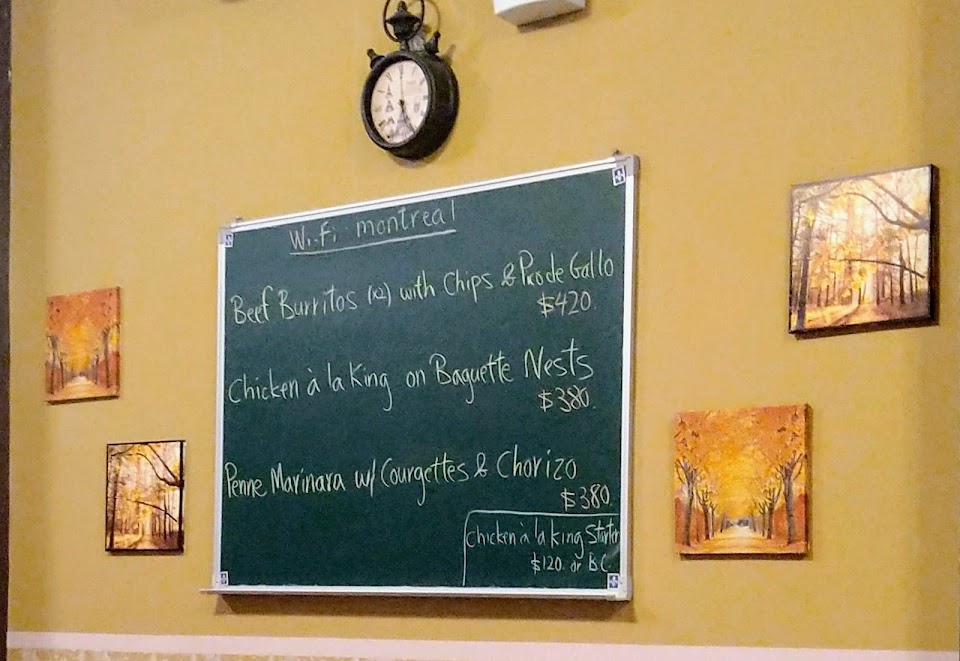 Wi-Fi montreal
Beef Burritos (x2) with Chips & Pico de Gallo
$420.
Chicken à la King on Baguette Nests
$380.
Penne Marinara w/ Courgettes & Chorizo
$380.
Chicken à la king Starter
$120. or B.C.